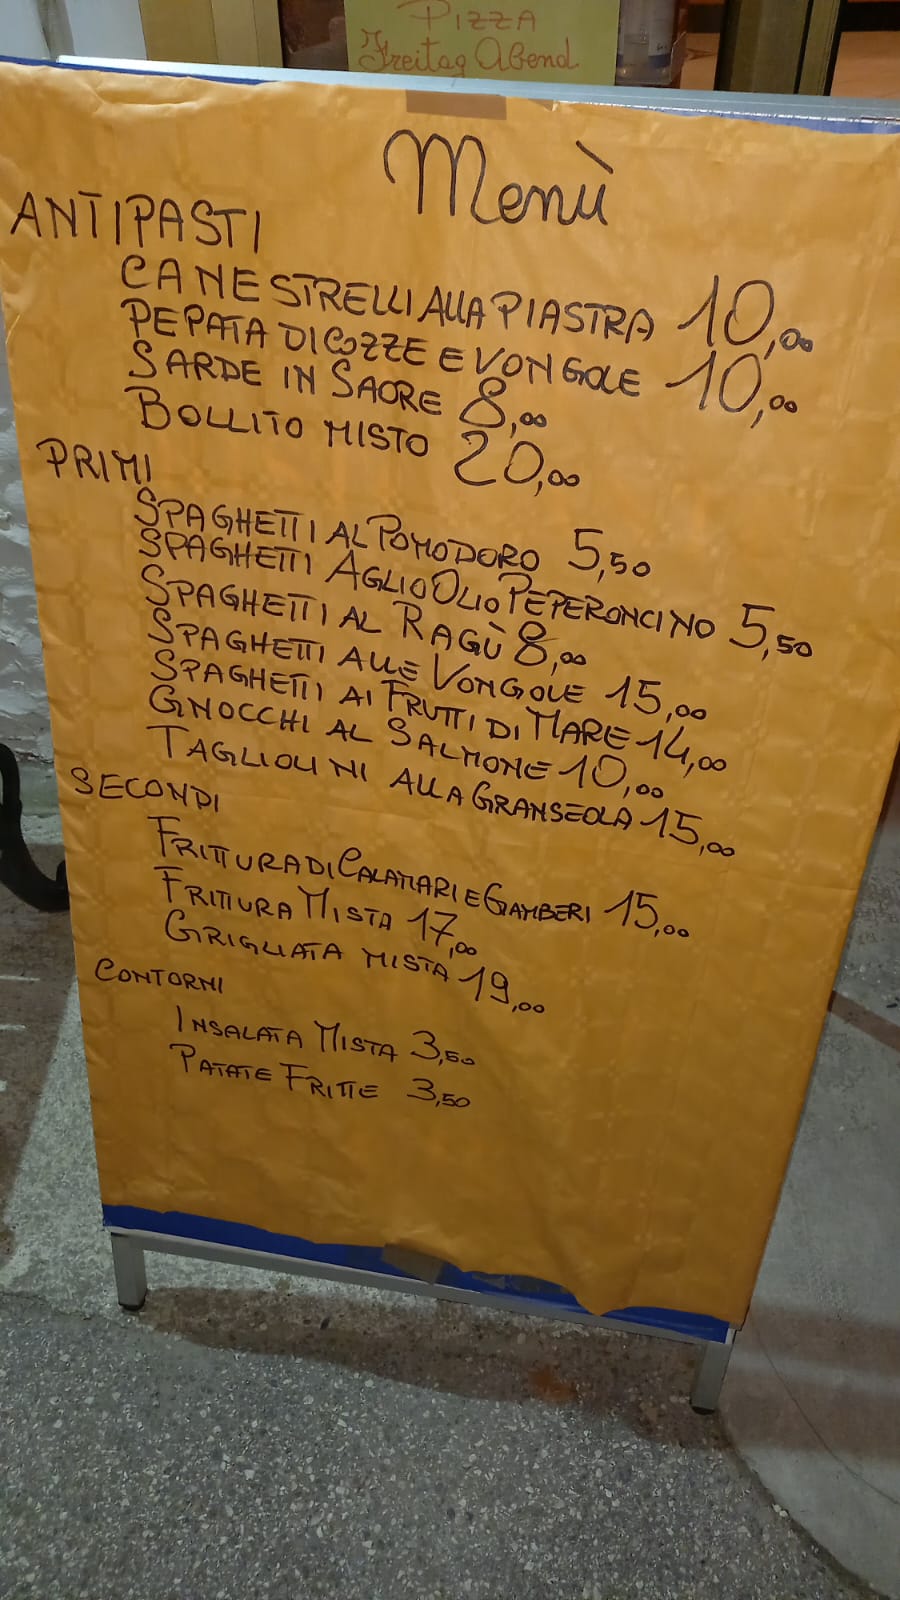 PIZZA
Freitag Abend
Menù
ANTIPASTI
CANESTRELLI ALLA PIASTRA 10,00
PEPATA DI COZZE E VONGOLE 10,00
SARDE IN SAORE 8,00
BOLLITO MISTO 20,00
PRIMI
SPAGHETTI AL POMODORO 5,50
SPAGHETTI AGLIO OLIO PEPERONCINO 5,50
SPAGHETTI AL RAGÙ 8,00
SPAGHETTI ALLE VONGOLE 15,00
SPAGHETTI AI FRUTTI DI MARE 14,00
GNOCCHI AL SALMONE 10,00
TAGLIOLINI ALLA GRANSEOLA 15,00
SECONDI
FRITTURA DI CALAMARI E GAMBERI 15,00
FRITTURA MISTA 17,00
GRIGLIATA MISTA 19,00
CONTORNI
INSALATA MISTA 3,50
PATATE FRITTE 3,50